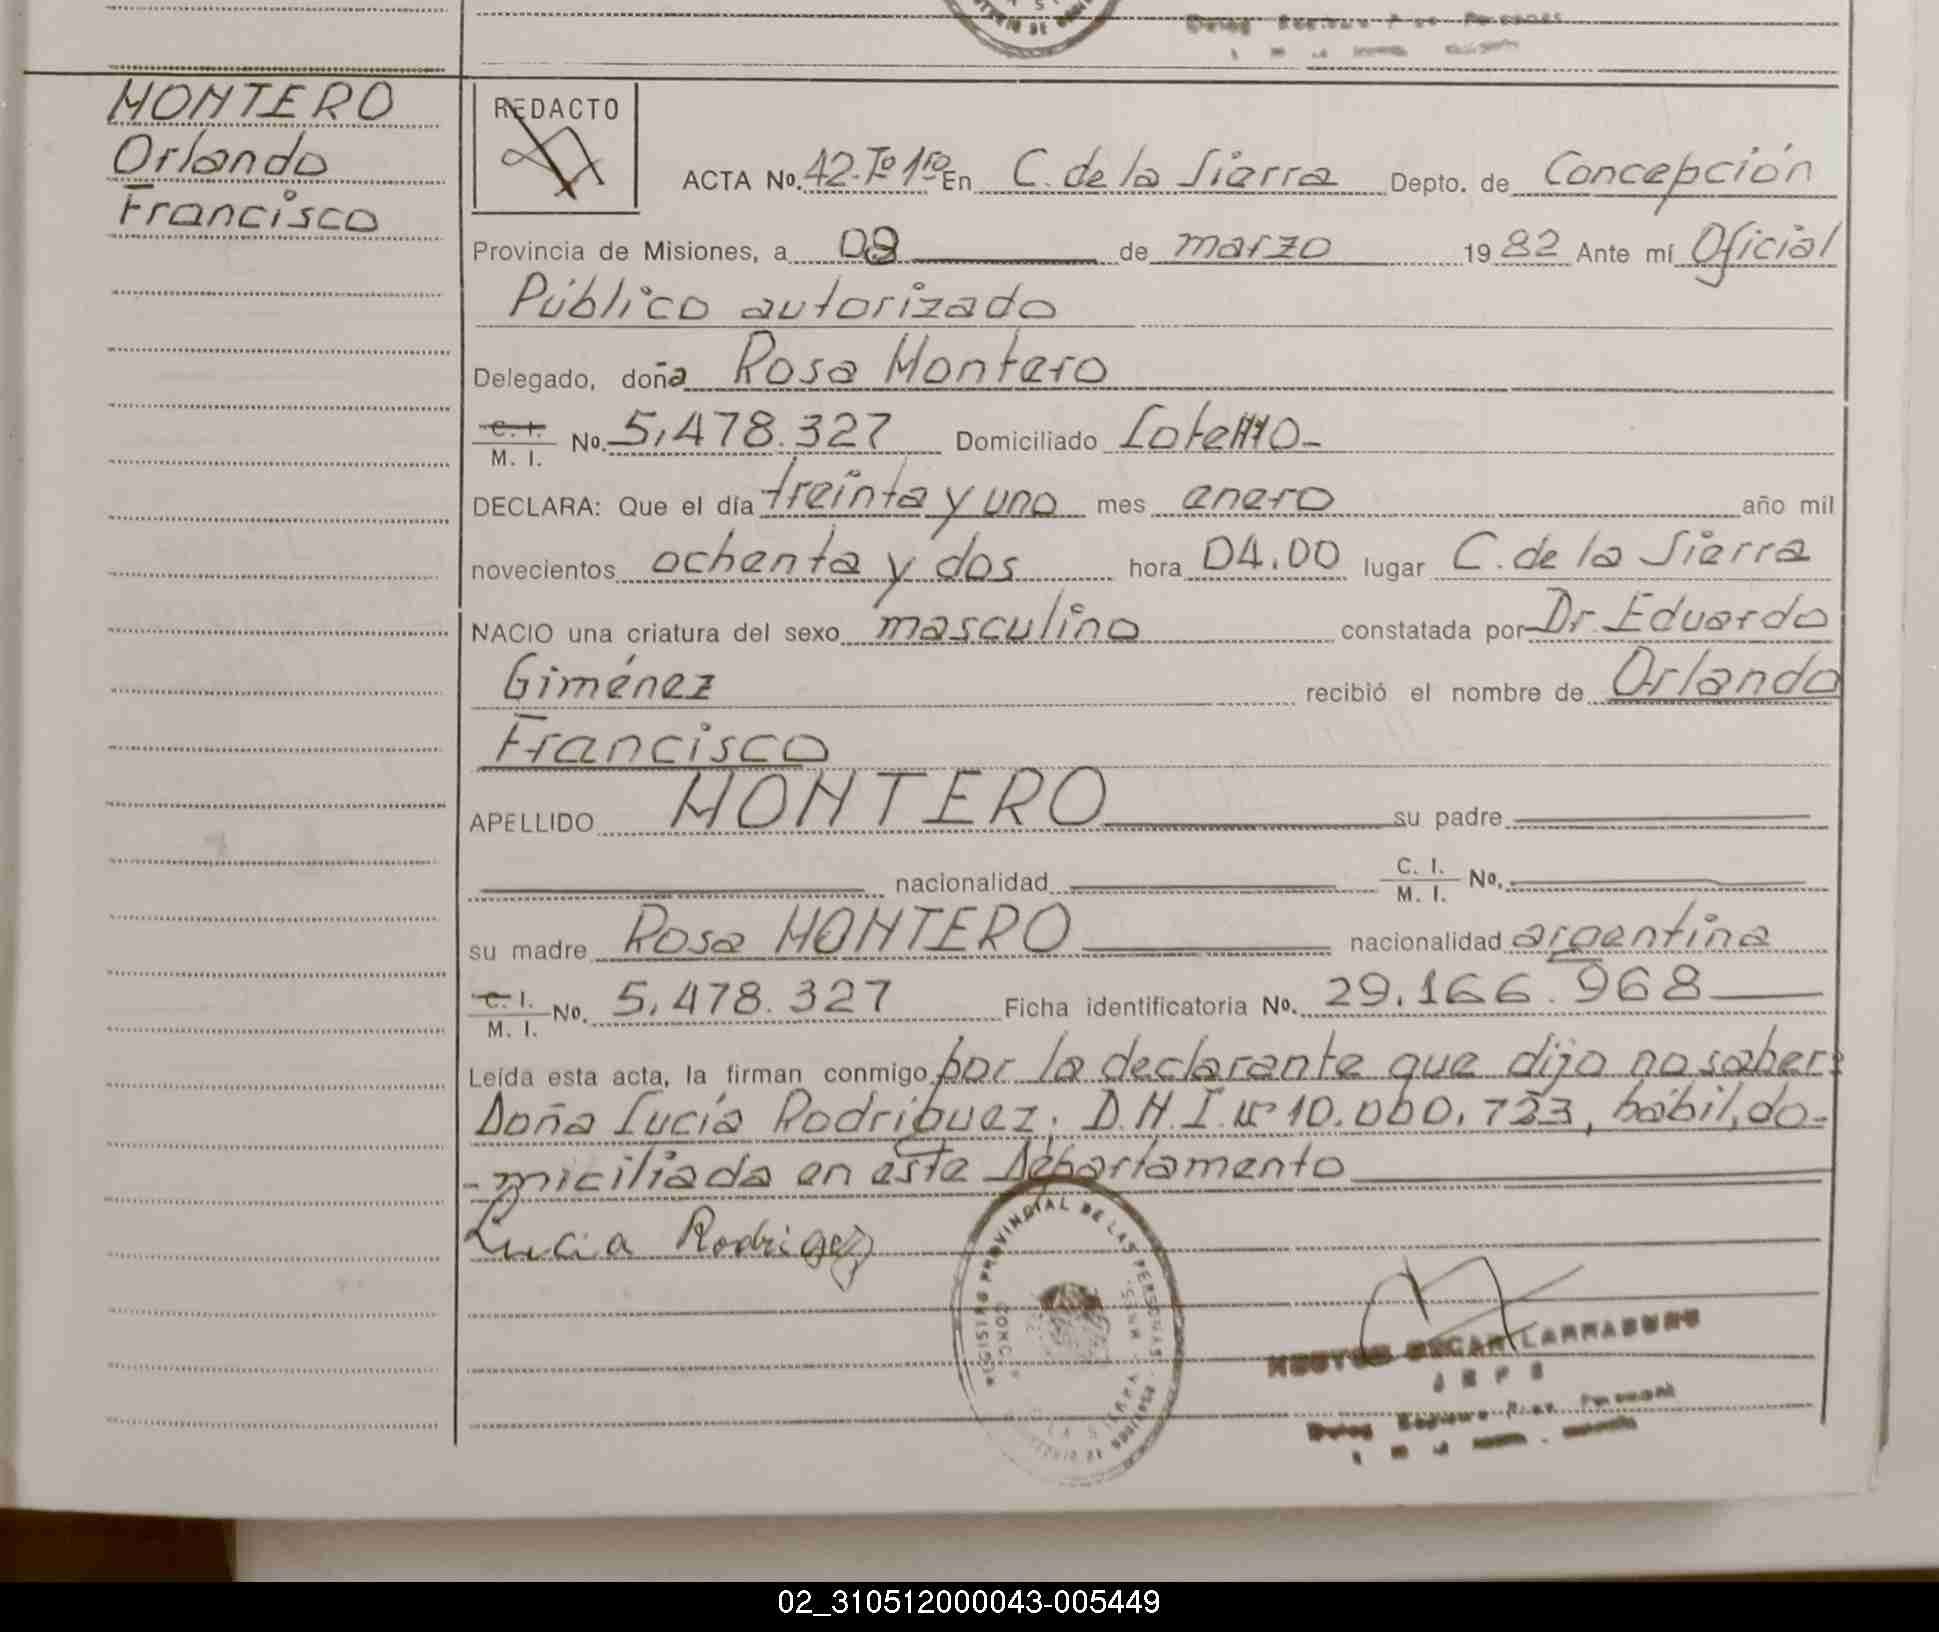 MONTERO
Orlando
Francisco
REDACTO
ACTA No. 42-Tº 1ro En C. de la Sierra Depto. de Concepción
Provincia de Misiones, a 09 de marzo 1982 Ante mí Oficial
Público autorizado
Delegado, doña Rosa Montero
C. I. M. I. No. 5,478.327 Domiciliado Lote
DECLARA: Que el día treinta y uno mes enero año mil
novecientos ochenta y dos hora 04.00 lugar C. de la Sierra
NACIO una criatura del sexo masculino constatada por Dr. Eduardo
Giménez recibió el nombre de Orlando
Francisco
APELLIDO MONTERO su padre
nacionalidad C. I. M. I. No.
su madre Rosa MONTERO nacionalidad argentina
C. I. M. I. No. 5.478.327 Ficha identificatoria No. 29.166.968
Leída esta acta, la firman conmigo por la declarante que dijo no saber:
Doña Lucía Rodríguez, D.N.I. nº 10.000.723, hábil, do-
-miciliada en este Departamento
Lucia Rodriguez
REGISTRO PROVINCIAL DE LAS PERSONAS
OSCAR LARRABURU
JEFE
02_310512000043-005449